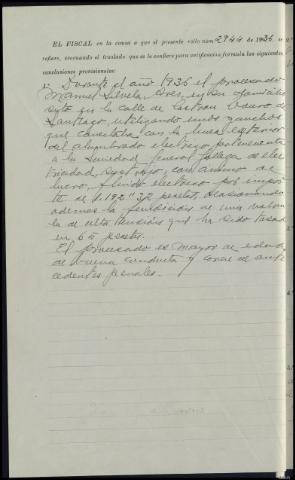 EL FISCAL en la causa a que el presente rollo núm. 2944 de 1936 se
refiere, evacuando el traslado que se le confiere para calificación formula las siguientes
conclusiones provisionales:
1ª Durante el año 1936 el procesado
Manuel
sito en la calle de Castron Douro de
Santiago, utilizando unos ganchos
que conectaba con la linea exterior
del alumbrado electrico, perteneciente
a la Sociedad general gallega de elec
tricidad, sustrajo, con animo de
lucro, fluido electrico por impor
te de 1.192"32 pesetas, ocasionando
ademas la de una valvu
la de alta tensión que ha sido tasada
en 65 pesetas.
El procesado es mayor de edad
de buena conducta y carece de ante
cedentes penales.